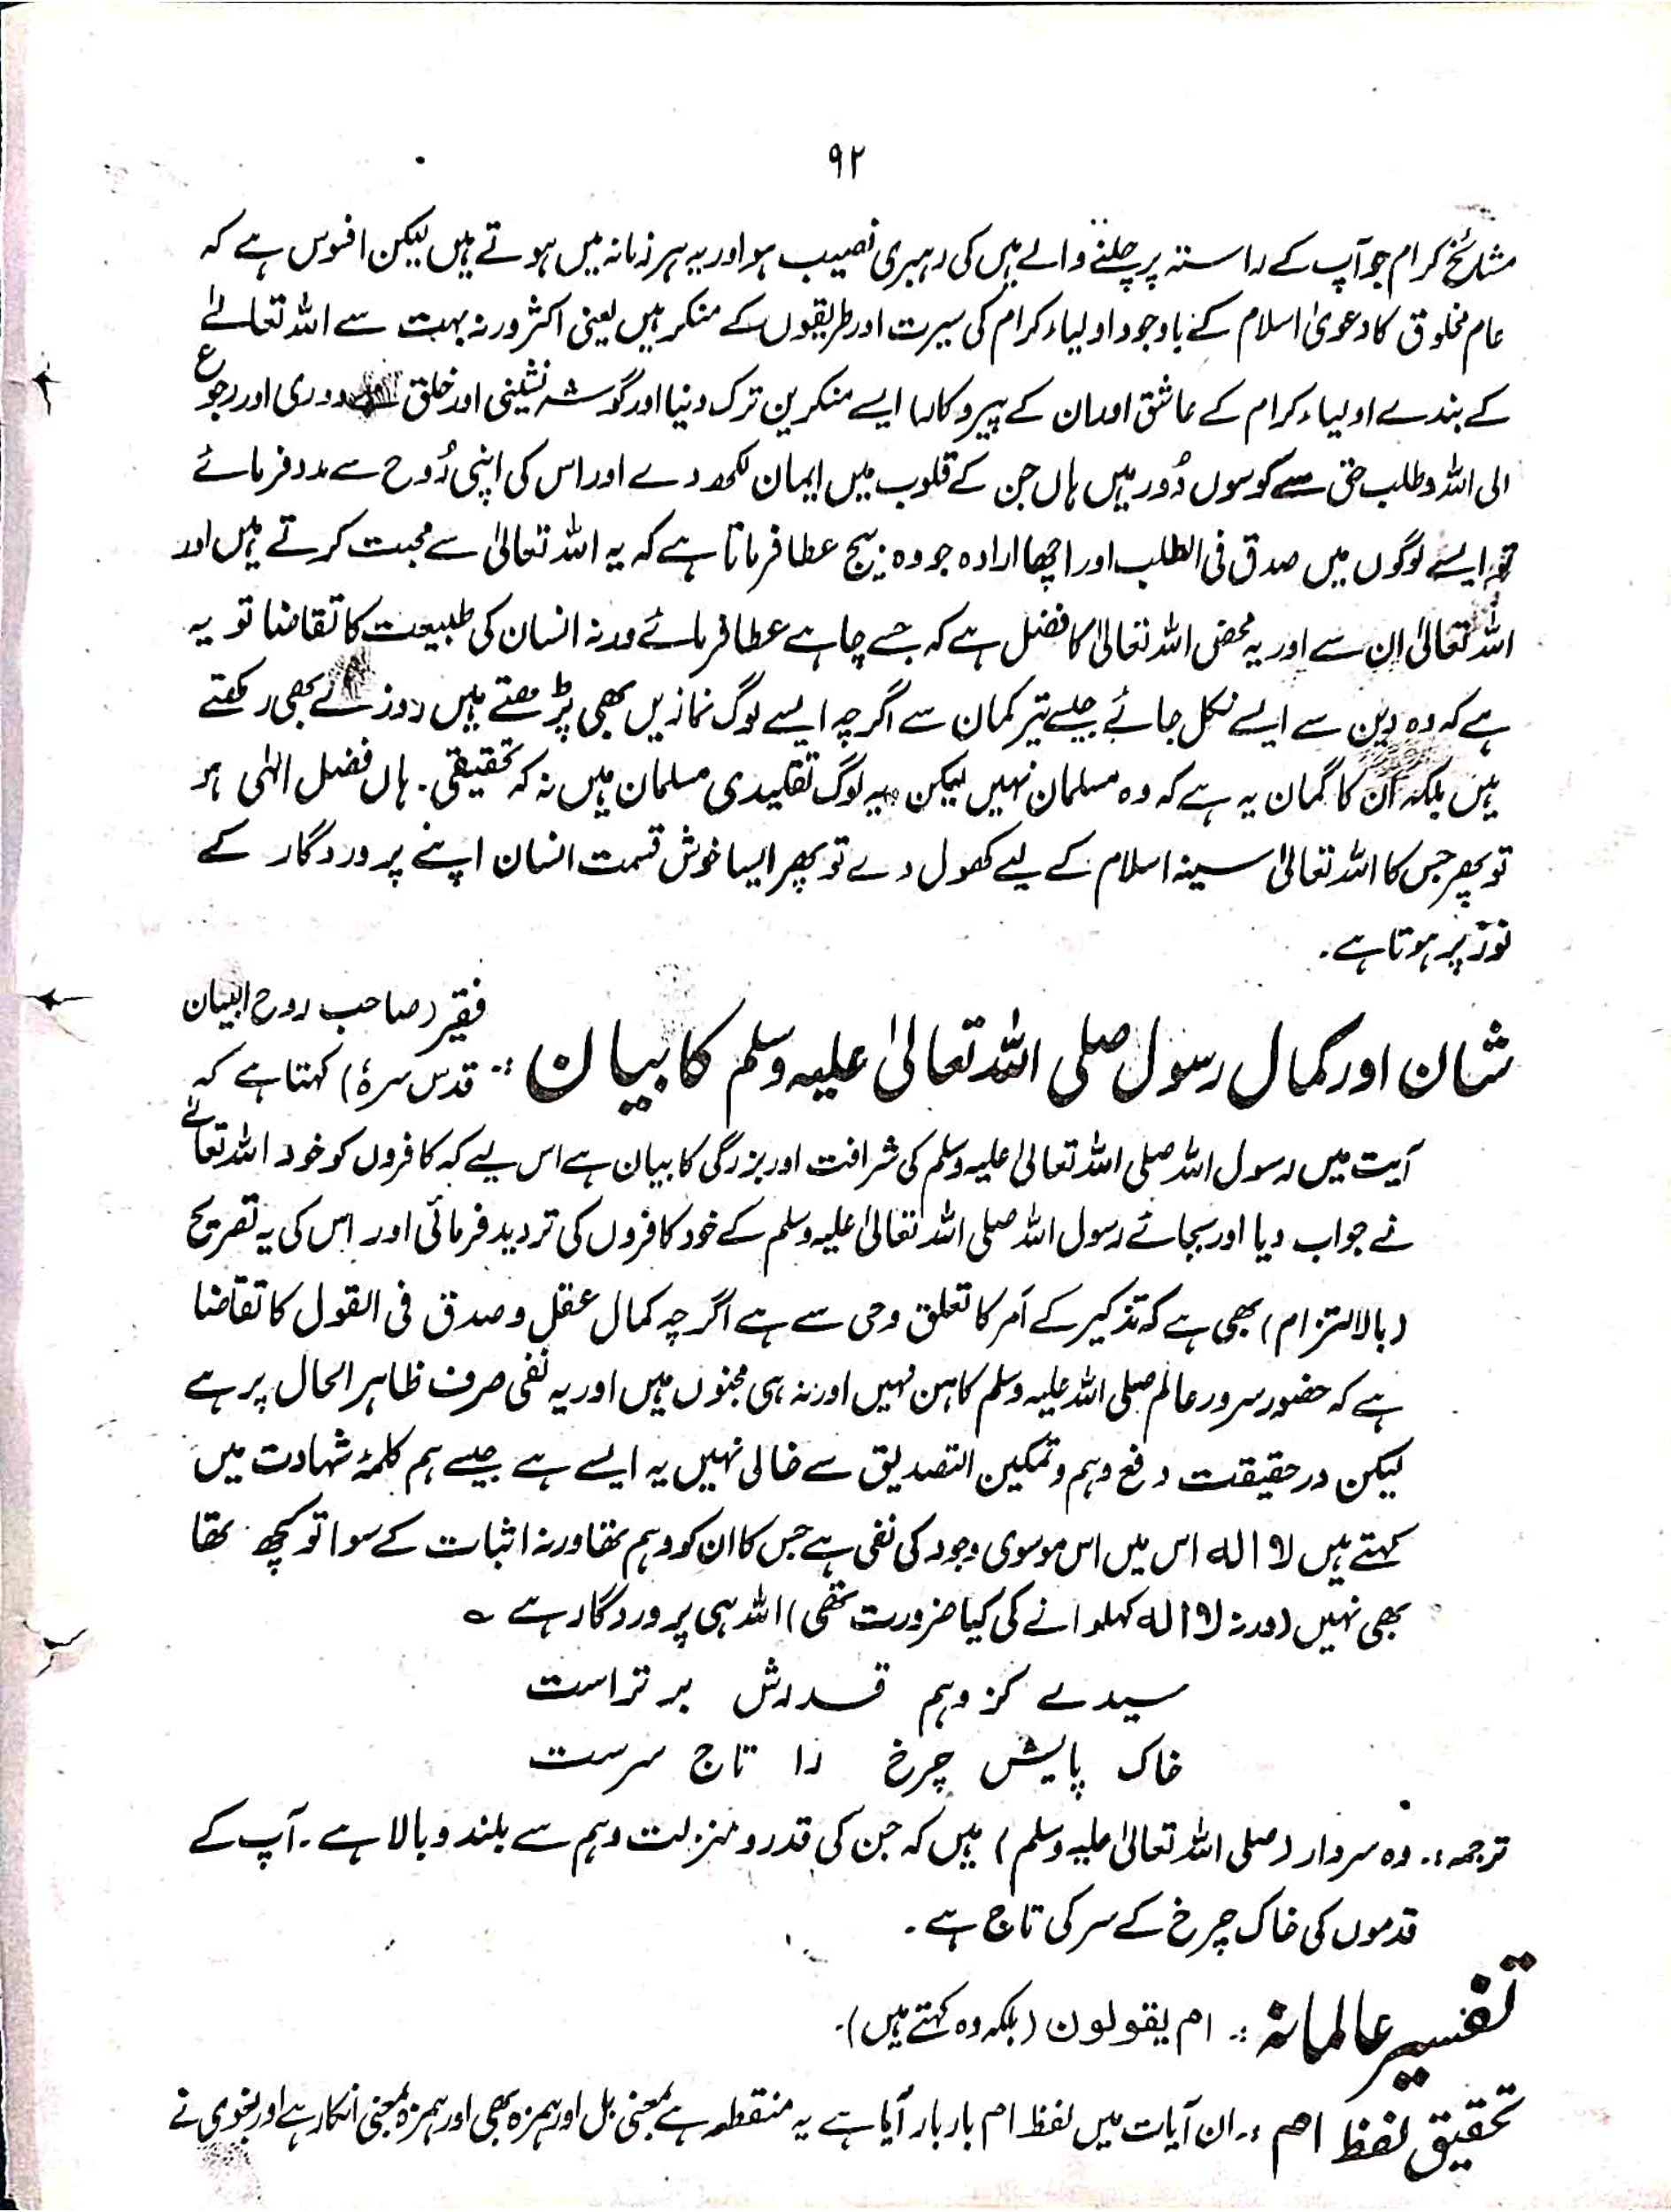 ۹۲
مشائخ کرام جو آپ کے راستہ پر چلنے والے ہیں کی رہبری نصیب ہو اور یہ ہر زمانہ میں ہوتے ہیں لیکن افسوس ہے کہ
عام مخلوق کا دعویٰ اسلام کے باوجود اولیاء کرام کی سیرت اور طریقوں کے منکر ہیں یعنی اکثر ورنہ بہت سے اللہ تعالےٰ
کے بندے اولیاء کرام کے عاشق اور ان کے پیروکار۔ ایسے منکرین ترک دنیا اور گوشہ نشینی اور خلق سے دوری اور رجوع
الی اللہ و طلب حق سے کوسوں دُور ہیں ہاں جن کے قلوب میں ایمان لکھ دے اور اس کی اپنی رُوح سے مدد فرمائے
تو ایسے لوگوں میں صدق فی الطلب اور اچھا ارادہ جو وہ بیج عطا فرماتا ہے کہ یہ اللہ تعالیٰ سے محبت کرتے ہیں اور
اللہ تعالیٰ ان سے اور یہ محض اللہ تعالیٰ کا فضل ہے کہ جسے چاہے عطا فرمائے ورنہ انسان کی طبیعت کا تقاضا تو یہ
ہے کہ وہ دین سے ایسے نکل جائے جیسے تیر کمان سے اگرچہ ایسے لوگ نمازیں بھی پڑھتے ہیں روزے بھی رکھتے
ہیں بلکہ ان کا گمان یہ ہے کہ وہ مسلمان نہیں لیکن یہ لوگ تقلیدی مسلمان ہیں نہ کہ تحقیقی۔ ہاں فضل الٰہی ہو
تو پھر جس کا اللہ تعالیٰ سینہ اسلام کے لیے کھول دے تو پھر ایسا خوش قسمت انسان اپنے پروردگار کے
نور پر ہوتا ہے۔
شان اور کمال رسول صلی اللہ تعالیٰ علیہ وسلم کا بیان :- فقیر (صاحب روح البیان
قدس سرہٗ) کہتا ہے کہ
آیت میں رسول اللہ صلی اللہ تعالیٰ علیہ وسلم کی شرافت اور بزرگی کا بیان ہے اس لیے کہ کافروں کو خود اللہ تعالےٰ
نے جواب دیا اور بجائے رسول اللہ صلی اللہ تعالیٰ علیہ وسلم کے خود کافروں کی تردید فرمائی اور اس کی یہ تصریح
(بالالتزام) بھی ہے کہ تذکیر کے اَمر کا تعلق وحی سے ہے اگرچہ کمال عقل و صدق فی القول کا تقاضا
ہے کہ حضور سرور عالم صلی اللہ علیہ وسلم کاہن نہیں اور نہ ہی مجنوں ہیں اور یہ نفی صرف ظاہر الحال پر ہے
لیکن درحقیقت دفع وہم و تمکین التصدیق سے خالی نہیں یہ ایسے ہے جیسے ہم کلمۂ شہادت میں
کہتے ہیں لا الہ اس میں اس موسوی وجود کی نفی ہے جس کا ان کو وہم تھا ورنہ اثبات کے سوا تو کچھ تھا
بھی نہیں (ورنہ لا الہ کہلوانے کی کیا ضرورت تھی) اللہ ہی پروردگار ہے ؎
سیدے کز وہم قدرش برتراست
خاک پایش چرخ را تاج سرست
ترجمہ :۔ وہ سردار (صلی اللہ تعالیٰ علیہ وسلم) ہیں کہ جن کی قدر و منزلت وہم سے بلند و بالا ہے۔ آپ کے
قدموں کی خاک چرخ کے سر کی تاج ہے۔
تفسیر عالمانہ :۔ ام یقولون (بلکہ وہ کہتے ہیں)۔
تحقیق لفظ ام :۔ ان آیات میں لفظ ام بار بار آیا ہے یہ منقطعہ ہے بمعنی بل اور ہمزہ بھی اور ہمزہ بمعنی انکار ہے اور بغوی نے